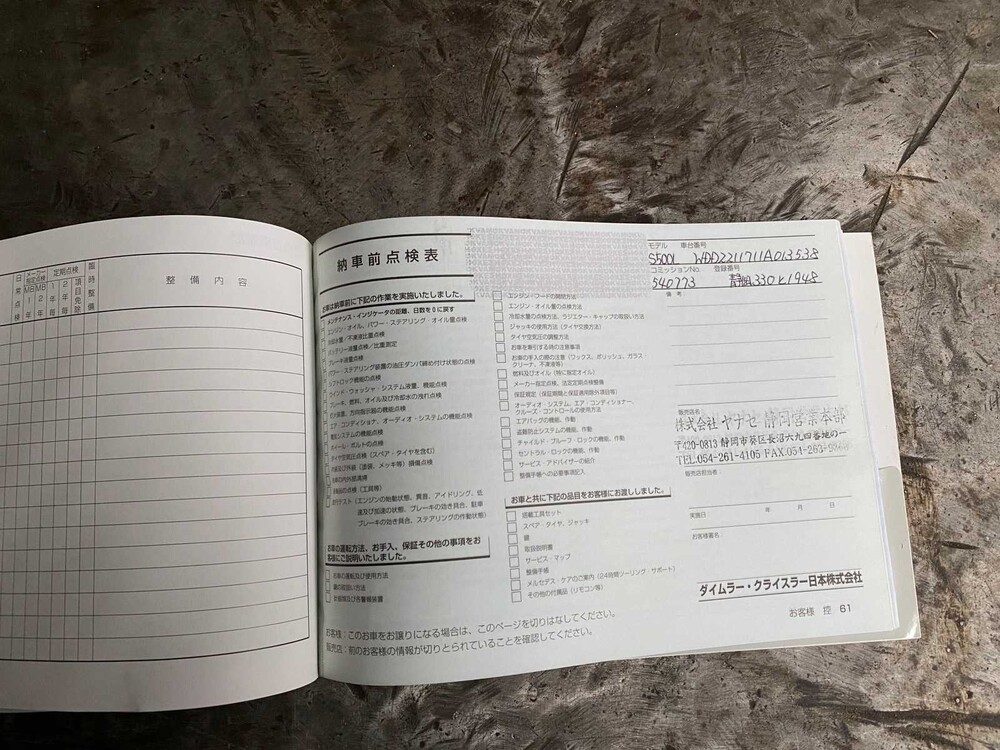 日常点検
メーカー指定点検
MB1年
MB2年
定期点検
1年毎
2年毎
項目免除
臨時整備
整備内容
納車前点検表
モデル 車台番号
S500L WDD2211711A013538
コミッションNo. 登録番号
540773 静岡330と1948
備考
お車は納車前に下記の作業を実施いたしました。
メンテナンス・インジケータの距離、日数を0に戻す
エンジン・オイル、パワー・ステアリング・オイル量点検
冷却水量/不凍液比重点検
バッテリー液量点検/比重測定
ブレーキ液量点検
パワー・ステアリング装置の油圧ダンパ締め付け状態の点検
シフトロック機能の点検
ウインド・ウォッシャ・システム液量、機能点検
ブレーキ、燃料、オイル及び冷却水の洩れ点検
灯火装置、方向指示器の機能点検
エア・コンディショナ、オーディオ・システムの機能点検
電気システムの機能点検
ホイール・ボルトの点検
タイヤ空気圧点検(スペア・タイヤを含む)
内装及び外装(塗装、メッキ等)損傷点検
お車の内外部清掃
付属品の点検(工具等)
走行テスト(エンジンの始動状態、異音、アイドリング、低
速及び加速の状態、ブレーキの効き具合、駐車
ブレーキの効き具合、ステアリングの作動状態)
お車の運転方法、お手入、保証その他の事項をお
客様にご説明いたしました。
お車の運転及び使用方法
鍵の取扱い方法
計器類及び各警報装置
エンジン・フードの開閉方法
エンジン・オイル量の点検方法
冷却水量の点検方法、ラジエター・キャップの取扱い方法
ジャッキの使用方法(タイヤ交換方法)
タイヤ空気圧の調整方法
お車を牽引する時の注意事項
お車の手入の際の注意(ワックス、ポリッシュ、ガラス・
クリーナ、不凍液等)
燃料及びオイル(特に指定オイル)
メーカー指定点検、法定定期点検整備
保証規定(保証期間と保証適用除外項目等)
オーディオ・システム、エア・コンディショナー、
クルーズ・コントロールの使用方法
エアバッグの機能、作動
盗難防止システムの機能、作動
チャイルド・プルーフ・ロックの機能、作動
セントラル・ロックの機能、作動
サービス・アドバイザーの紹介
整備手帳への必要事項記入
お車と共に下記の品目をお客様にお渡ししました。
搭載工具セット
スペア・タイヤ、ジャッキ
鍵
取扱説明書
サービス・マップ
整備手帳
メルセデス・ケアのご案内(24時間ツーリング・サポート)
その他の付属品(リモコン等)
販売店名
株式会社ヤナセ静岡営業本部
〒420-0813 静岡市葵区長沼六九四番地の一
TEL.054-261-4105 FAX.054-263-
販売店担当者
実施日: 年 月 日
お客様署名
ダイムラー・クライスラー日本株式会社
お客様:このお車をお譲りになる場合は、このページを切りはなしてください。
販売店:前のお客様の情報が切りとられていることを確認してください。
お客様 控 61